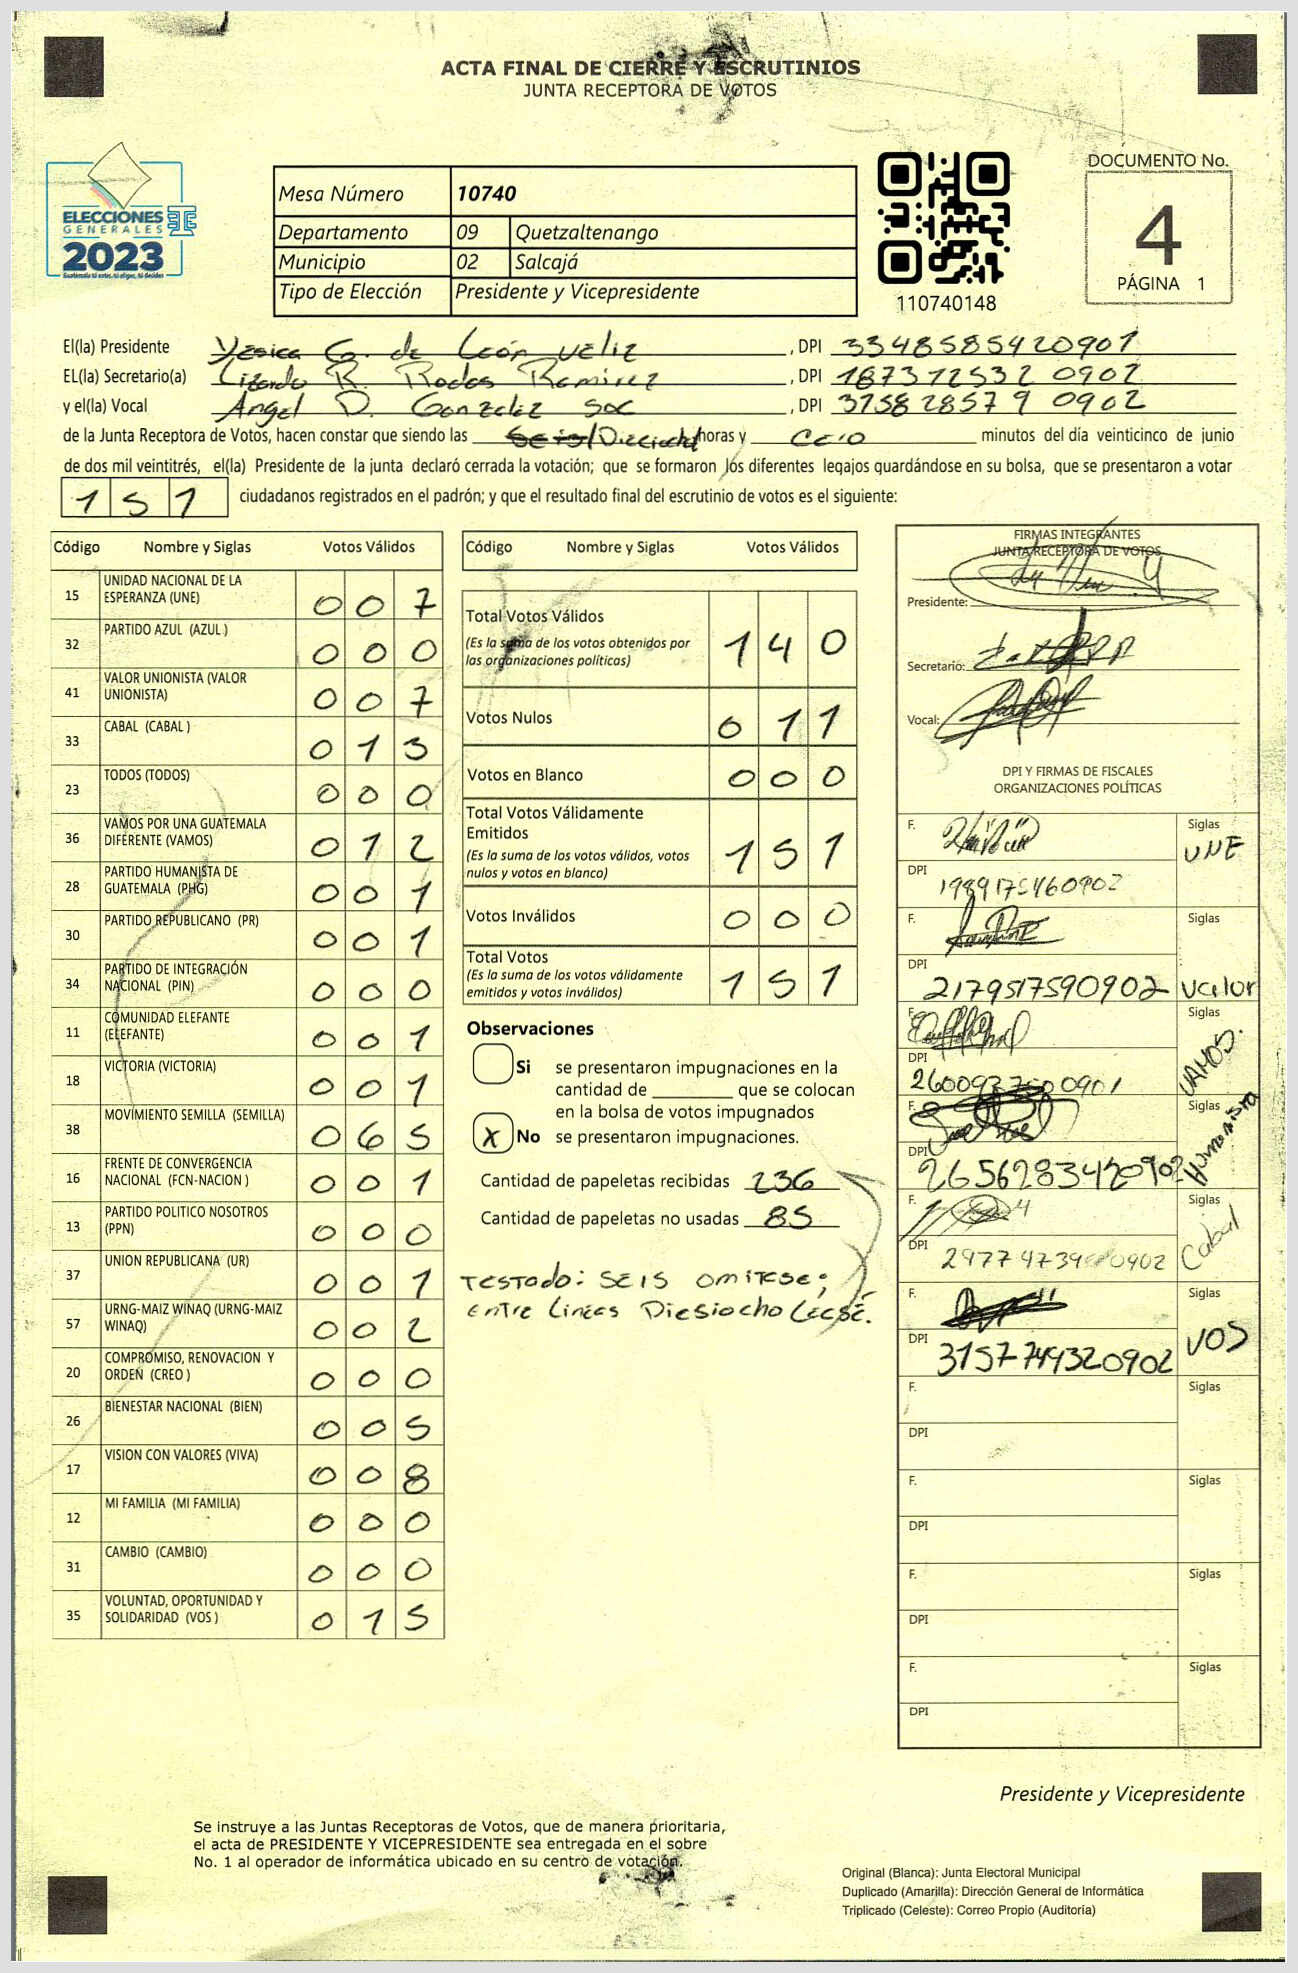 ACTA FINAL DE CIERRE Y ESCRUTINIOS
JUNTA RECEPTORA DE VOTOS
ELECCIONES
GENERALES
2023
Mesa Número 10740
Departamento 09 Quetzaltenango
Municipio 02 Salcajá
Tipo de Elección Presidente y Vicepresidente
110740148
DOCUMENTO No.
4
PÁGINA 1
El(la) Presidente Yesica G. de León Veliz, DPI 3348585420901
EL(la) Secretario(a) Lizardo R. Rodas Ramirez, DPI 187312532 0902
y el(la) Vocal Angel D. Gonzalez Soc, DPI 315828579 0902
de la Junta Receptora de Votos, hacen constar que siendo las Seis/Dieciocho horas y Cero minutos del día veinticinco de junio
de dos mil veintitrés, el(la) Presidente de la junta declaró cerrada la votación; que se formaron los diferentes legajos guardándose en su bolsa, que se presentaron a votar
151 ciudadanos registrados en el padrón; y que el resultado final del escrutinio de votos es el siguiente:
Código Nombre y Siglas Votos Válidos
15 UNIDAD NACIONAL DE LA ESPERANZA (UNE) 0 0 7
32 PARTIDO AZUL (AZUL ) 0 0 0
41 VALOR UNIONISTA (VALOR UNIONISTA) 0 0 7
33 CABAL (CABAL ) 0 1 3
23 TODOS (TODOS) 0 0 0
36 VAMOS POR UNA GUATEMALA DIFERENTE (VAMOS) 0 1 2
28 PARTIDO HUMANISTA DE GUATEMALA (PHG) 0 0 1
30 PARTIDO REPUBLICANO (PR) 0 0 1
34 PARTIDO DE INTEGRACIÓN NACIONAL (PIN) 0 0 0
11 COMUNIDAD ELEFANTE (ELEFANTE) 0 0 1
18 VICTORIA (VICTORIA) 0 0 1
38 MOVIMIENTO SEMILLA (SEMILLA) 0 6 5
16 FRENTE DE CONVERGENCIA NACIONAL (FCN-NACION ) 0 0 1
13 PARTIDO POLITICO NOSOTROS (PPN) 0 0 0
37 UNION REPUBLICANA (UR) 0 0 1
57 URNG-MAIZ WINAQ (URNG-MAIZ WINAQ) 0 0 2
20 COMPROMISO, RENOVACION Y ORDEN (CREO ) 0 0 0
26 BIENESTAR NACIONAL (BIEN) 0 0 5
17 VISION CON VALORES (VIVA) 0 0 8
12 MI FAMILIA (MI FAMILIA) 0 0 0
31 CAMBIO (CAMBIO) 0 0 0
35 VOLUNTAD, OPORTUNIDAD Y SOLIDARIDAD (VOS ) 0 1 5
Código Nombre y Siglas Votos Válidos
Total Votos Válidos 1 4 0
(Es la suma de los votos obtenidos por
las organizaciones políticas)
Votos Nulos 0 1 1
Votos en Blanco 0 0 0
Total Votos Válidamente
Emitidos 1 5 1
(Es la suma de los votos válidos, votos
nulos y votos en blanco)
Votos Inválidos 0 0 0
Total Votos 1 5 1
(Es la suma de los votos válidamente
emitidos y votos inválidos)
Observaciones
Si se presentaron impugnaciones en la
cantidad de ________ que se colocan
en la bolsa de votos impugnados
X No se presentaron impugnaciones.
Cantidad de papeletas recibidas 236
Cantidad de papeletas no usadas 85
Testado: SEIS omitese;
entre lineas Diesiocho Leese.
FIRMAS INTEGRANTES
JUNTA RECEPTORA DE VOTOS
Presidente:
Secretario:
Vocal:
DPI Y FIRMAS DE FISCALES
ORGANIZACIONES POLÍTICAS
F. Siglas UNE
DPI 1989175460902
F. Siglas Valor
DPI 2179517590902
F. Siglas VAMOS.
DPI
F. Siglas Humanista
DPI 2656283420902
F. Siglas Cabal
DPI
F. Siglas VOS
DPI 3157744320902
F. Siglas
DPI
F. Siglas
DPI
F. Siglas
DPI
F. Siglas
DPI
Presidente y Vicepresidente
Se instruye a las Juntas Receptoras de Votos, que de manera prioritaria,
el acta de PRESIDENTE Y VICEPRESIDENTE sea entregada en el sobre
No. 1 al operador de informática ubicado en su centro de votación.
Original (Blanca): Junta Electoral Municipal
Duplicado (Amarilla): Dirección General de Informática
Triplicado (Celeste): Correo Propio (Auditoría)